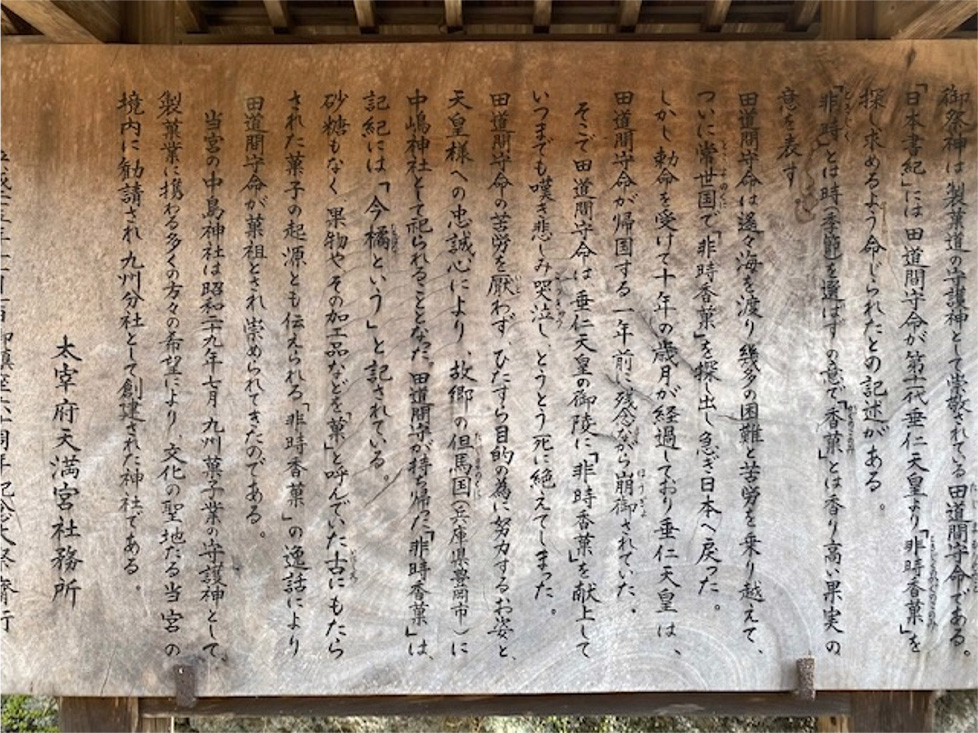 御祭神は製菓道の守護神として崇敬されている田道間守命である。
「日本書紀」には田道間守命が第十一代垂仁天皇より「非時香菓」を
探し求めるよう命じられたとの記述がある。
「非時」とは時(季節)を選ばずの意で「香菓」とは香り高い果実の
意を表す
田道間守命は遥々海を渡り幾多の困難と苦労を乗り越えて、
ついに常世国で「非時香菓」を探し出し急ぎ日本へ戻った。
しかし勅命を受けて十年の歳月が経過しており垂仁天皇は、
田道間守命が帰国する一年前に残念ながら崩御されていた、
そこで田道間守命は垂仁天皇の御陵に「非時香菓」を献上して
いつまでも嘆き悲しみ哭泣し、とうとう死に絶えてしまった。
田道間守命の苦労を厭わず、ひたすら目的の為に努力するお姿と、
天皇様への忠誠心により、故郷の但馬国(兵庫県豊岡市)に
中嶋神社として祀られることなった。田道間守が持ち帰た「非時香菓」は、
記紀には「今橘という」と記されている。
砂糖もなく果物やその加工品などを「菓」と呼んでいた古にもたら
された菓子の起源とも伝えられる「非時香菓」の逸話により
田道間守命が菓祖とされ崇められてきたのである。
当宮の中島神社は昭和二九年七月九州菓子業の守護神として、
製菓業に携わる多くの方々の希望により、文化の聖地たる当宮の
境内に勧請され九州分社として創建された神社である
太宰府天満宮社務所